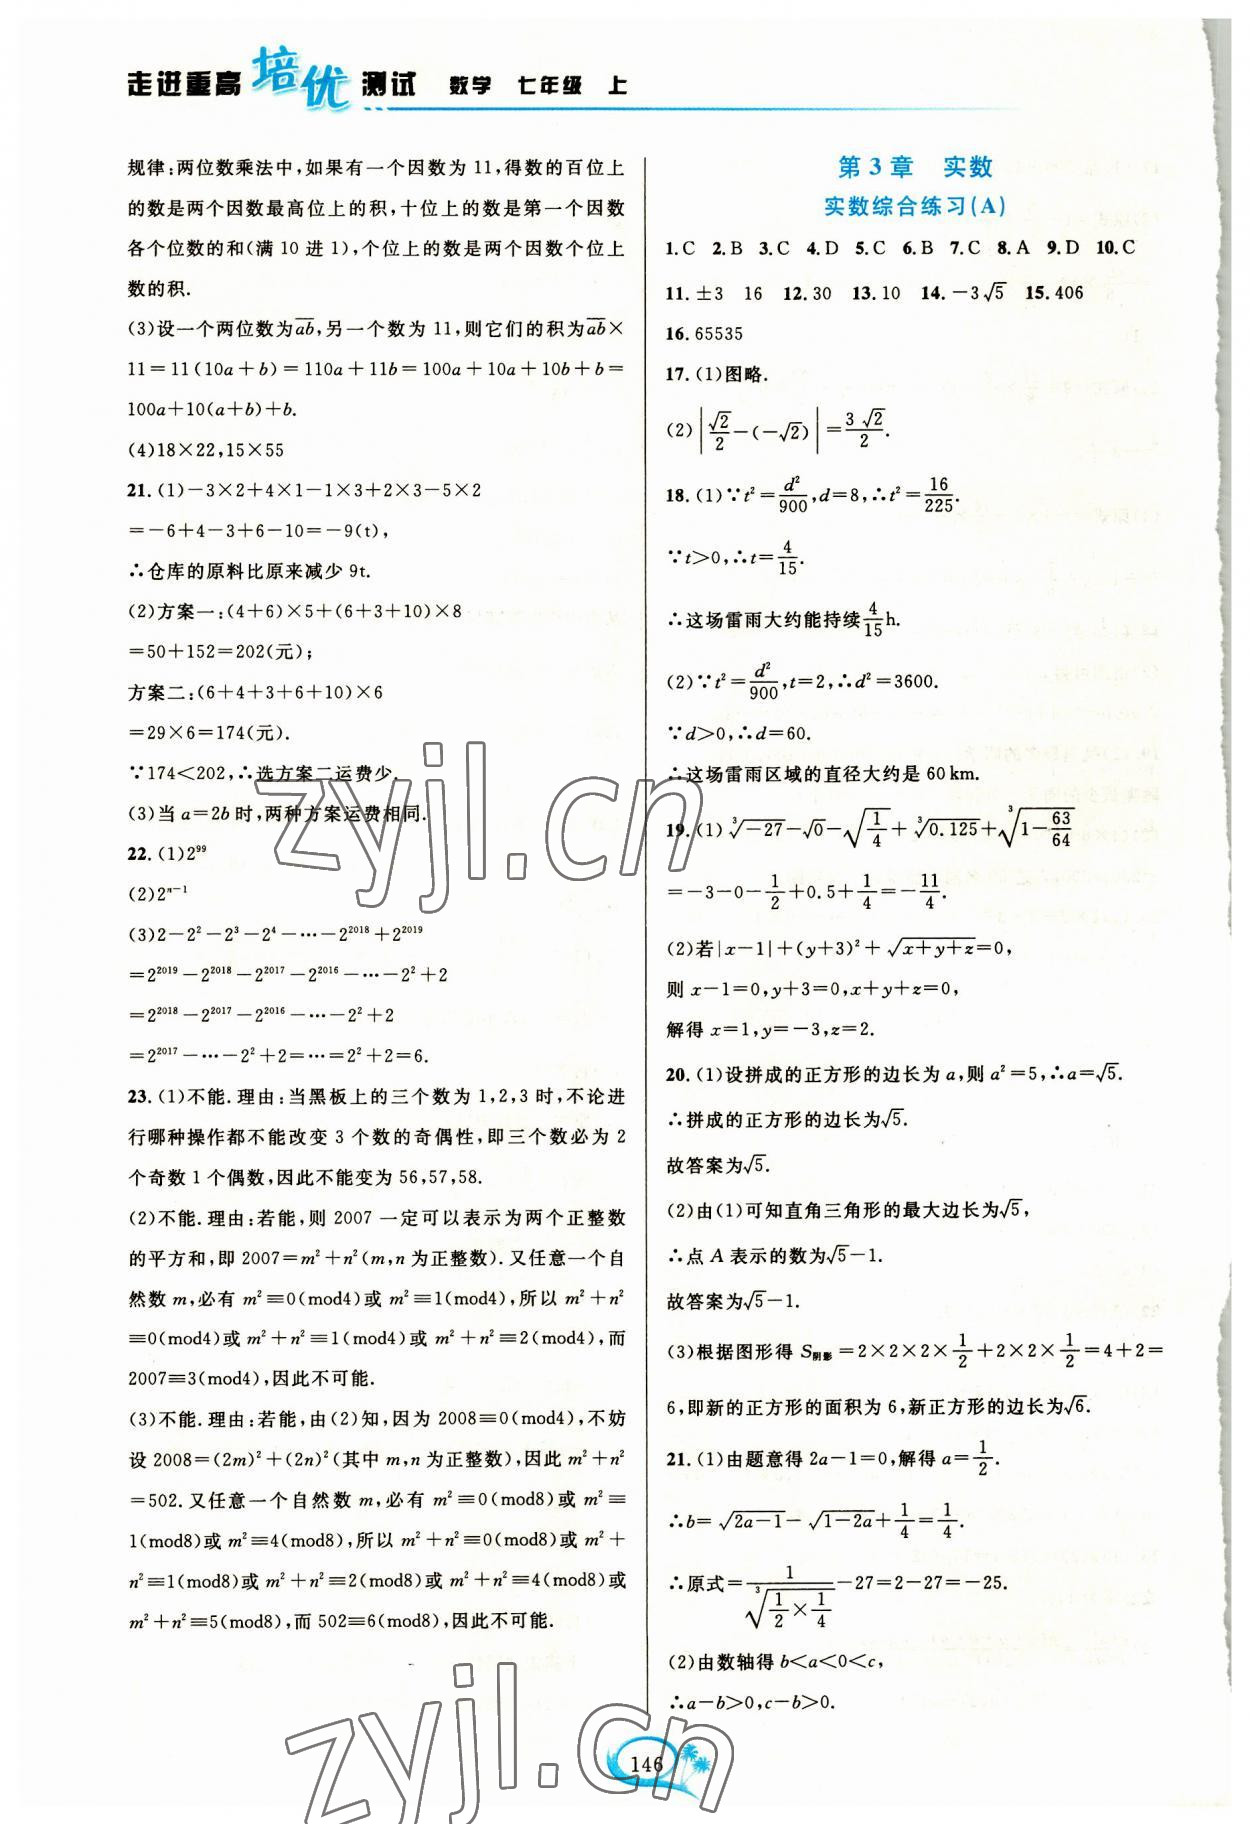 走进重高 培优 测试 数学 七年级 上
规律:两位数乘法中,如果有一个因数为 11,得数的百位上
的数是两个因数最高位上的积,十位上的数是第一个因数
各个位数的和(满 10 进 1),个位上的数是两个因数个位上
数的积.
(3)设一个两位数为$\overline{ab}$,另一个数为 11,则它们的积为$\overline{ab}$×
11=11(10a+b)=110a+11b=100a+10a+10b+b=
100a+10(a+b)+b.
(4)18×22,15×55
21. (1)-3×2+4×1-1×3+2×3-5×2
=-6+4-3+6-10=-9(t),
∴仓库的原料比原来减少 9t.
(2)方案一:(4+6)×5+(6+3+10)×8
=50+152=202(元);
方案二:(6+4+3+6+10)×6
=29×6=174(元).
∵174<202,∴选方案二运费少.
(3)当 a=2b 时,两种方案运费相同.
22. (1)2⁹⁹
(2)2ⁿ⁻¹
(3)2-2²-2³-2⁴-…-2²⁰¹⁸+2²⁰¹⁹
=2²⁰¹⁹-2²⁰¹⁸-2²⁰¹⁷-2²⁰¹⁶-…-2²+2
=2²⁰¹⁸-2²⁰¹⁷-2²⁰¹⁶-…-2²+2
=2²⁰¹⁷-…-2²+2=…=2²+2=6.
23. (1)不能.理由:当黑板上的三个数为 1,2,3 时,不论进
行哪种操作都不能改变 3 个数的奇偶性,即三个数必为 2
个奇数 1 个偶数,因此不能变为 56,57,58.
(2)不能.理由:若能,则 2007 一定可以表示为两个正整数
的平方和,即 2007=m²+n²(m,n 为正整数).又任意一个自
然数 m,必有 m²≡0(mod4)或 m²≡1(mod4),所以 m²+n²
≡0(mod4)或 m²+n²≡1(mod4)或 m²+n²≡2(mod4),而
2007≡3(mod4),因此不可能.
(3)不能.理由:若能,由(2)知,因为 2008≡0(mod4),不妨
设 2008=(2m)²+(2n)²(其中 m,n 为正整数),因此 m²+n²
=502.又任意一个自然数 m,必有 m²≡0(mod8)或 m²≡
1(mod8)或 m²≡4(mod8),所以 m²+n²≡0(mod8)或 m²+
n²≡1(mod8)或 m²+n²≡2(mod8)或 m²+n²≡4(mod8)或
m²+n²≡5(mod8),而 502≡6(mod8),因此不可能.
第 3 章 实数
实数综合练习(A)
1.C 2.B 3.C 4.D 5.C 6.B 7.C 8.A 9.D 10.C
11.±3 16 12.30 13.10 14.-3√5 15.406
16.65535
17. (1)图略.
(2)$\left|\frac{\sqrt{2}}{2}-(-\sqrt{2})\right|=\frac{3\sqrt{2}}{2}$.
18. (1)∵$t^2=\frac{d^2}{900}$,d=8,∴$t^2=\frac{16}{225}$.
∵t>0,∴$t=\frac{4}{15}$.
∴这场雷雨大约能持续$\frac{4}{15}$h.
(2)∵$t^2=\frac{d^2}{900}$,t=2,∴d²=3600.
∵d>0,∴d=60.
∴这场雷雨区域的直径大约是 60 km.
19. (1)$\sqrt[3]{-27}-\sqrt{0}-\sqrt{\frac{1}{4}}+\sqrt[3]{0.125}+\sqrt[3]{1-\frac{63}{64}}$
$=-3-0-\frac{1}{2}+0.5+\frac{1}{4}=-\frac{11}{4}$.
(2)若|x-1|+(y+3)²+$\sqrt{x+y+z}$=0,
则 x-1=0,y+3=0,x+y+z=0,
解得 x=1,y=-3,z=2.
20. (1)设拼成的正方形的边长为 a,则 a²=5,∴a=√5.
∴拼成的正方形的边长为√5.
故答案为√5.
(2)由(1)可知直角三角形的最大边长为√5,
∴点 A 表示的数为√5-1.
故答案为√5-1.
(3)根据图形得 $S_{阴影}=2×2×2×\frac{1}{2}+2×2×\frac{1}{2}=4+2=$
6,即新的正方形的面积为 6,新正方形的边长为√6.
21. (1)由题意得 2a-1=0,解得 $a=\frac{1}{2}$.
∴$b=\sqrt{2a-1}-\sqrt{1-2a}+\frac{1}{4}=\frac{1}{4}$.
∴原式=$\frac{1}{\sqrt[3]{\frac{1}{2}×\frac{1}{4}}}-27=2-27=-25$.
(2)由数轴得 b<a<0<c,
∴a-b>0,c-b>0.
146
zyjl.cn
zyjl.cn